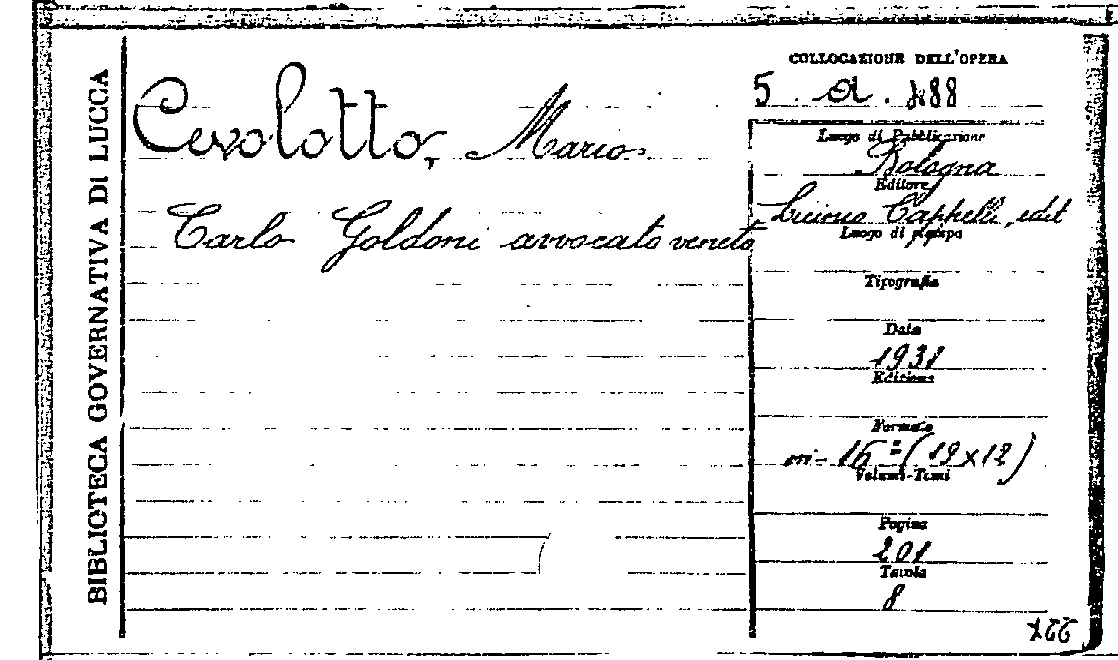 BIBLIOTECA GOVERNATIVA DI LUCCA
Cevolotto, Mario
Carlo Goldoni avvocato veneto
COLLOCAZIONE DELL'OPERA
5 a. 188
Luogo di Pubblicazione
Bologna
Editore
Licinio Cappelli, edit
Luogo di stampa
Tipografia
Data
1931
Edizione
Formato
in-16º (19x12)
Volumi-Tomi
Pagine
201
Tavole
8